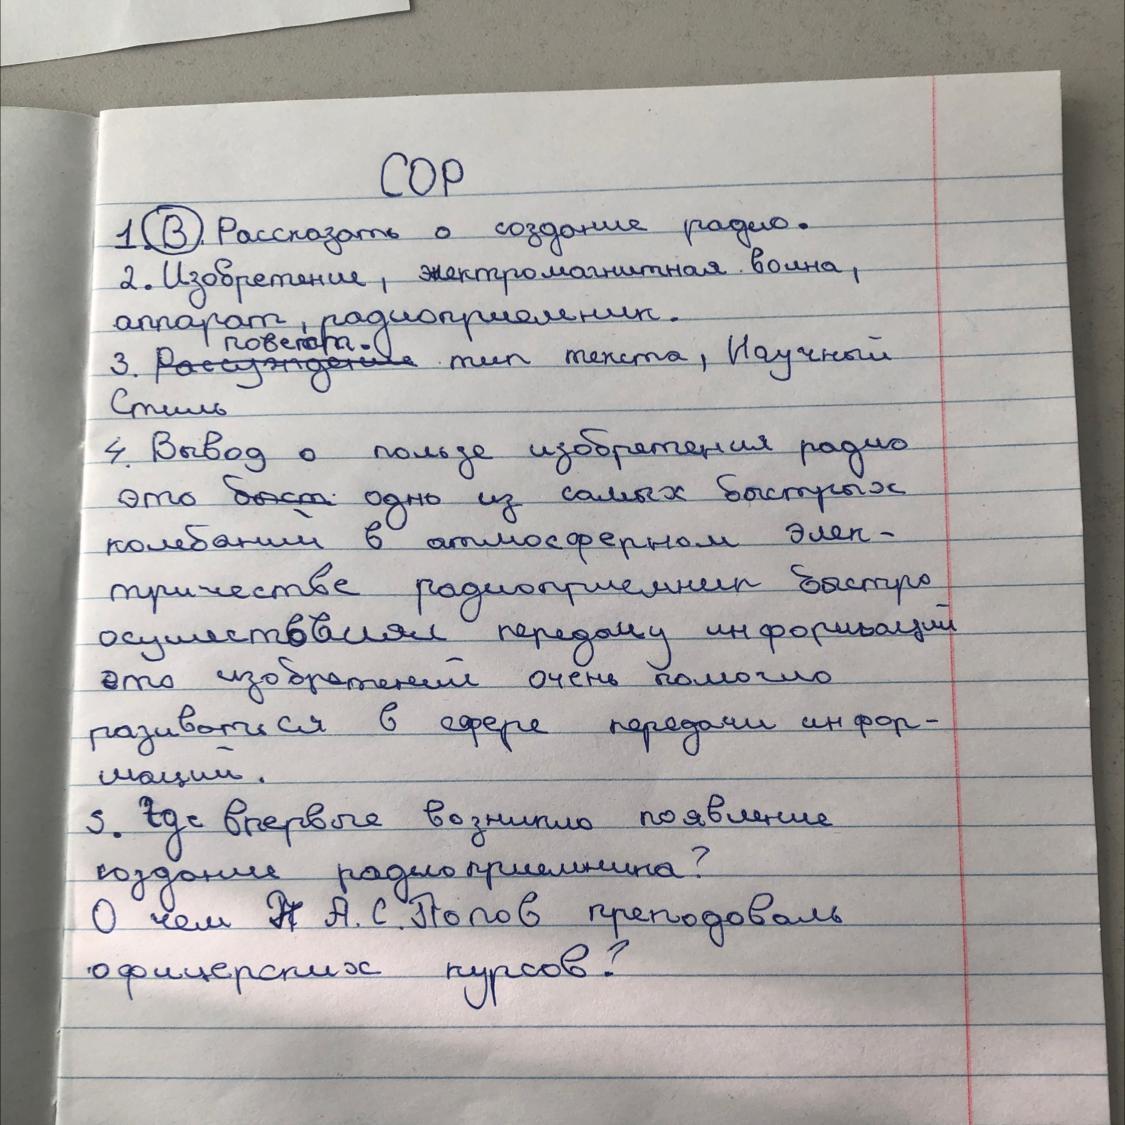 СОР
1. В. Рассказать о создание радио.
2. Изобретение, электромагнитная волна,
аппарат, радиоприемник.
повествов.
3. Рассуждение тип текста, Научный
Стиль
4. Вывод о пользе изобретения радио
это быст одно из самых быстрых
колебаний в атмосферном элек-
тричестве радиоприемник быстро
осуществлял передачу информаций
это изобретений очень помогло
развиваться в сфере передачи инфор-
маций.
5. Где впервые возникло появление
создание радиоприемника?
О чем А.С.Попов преподоваль
офицерских курсов?